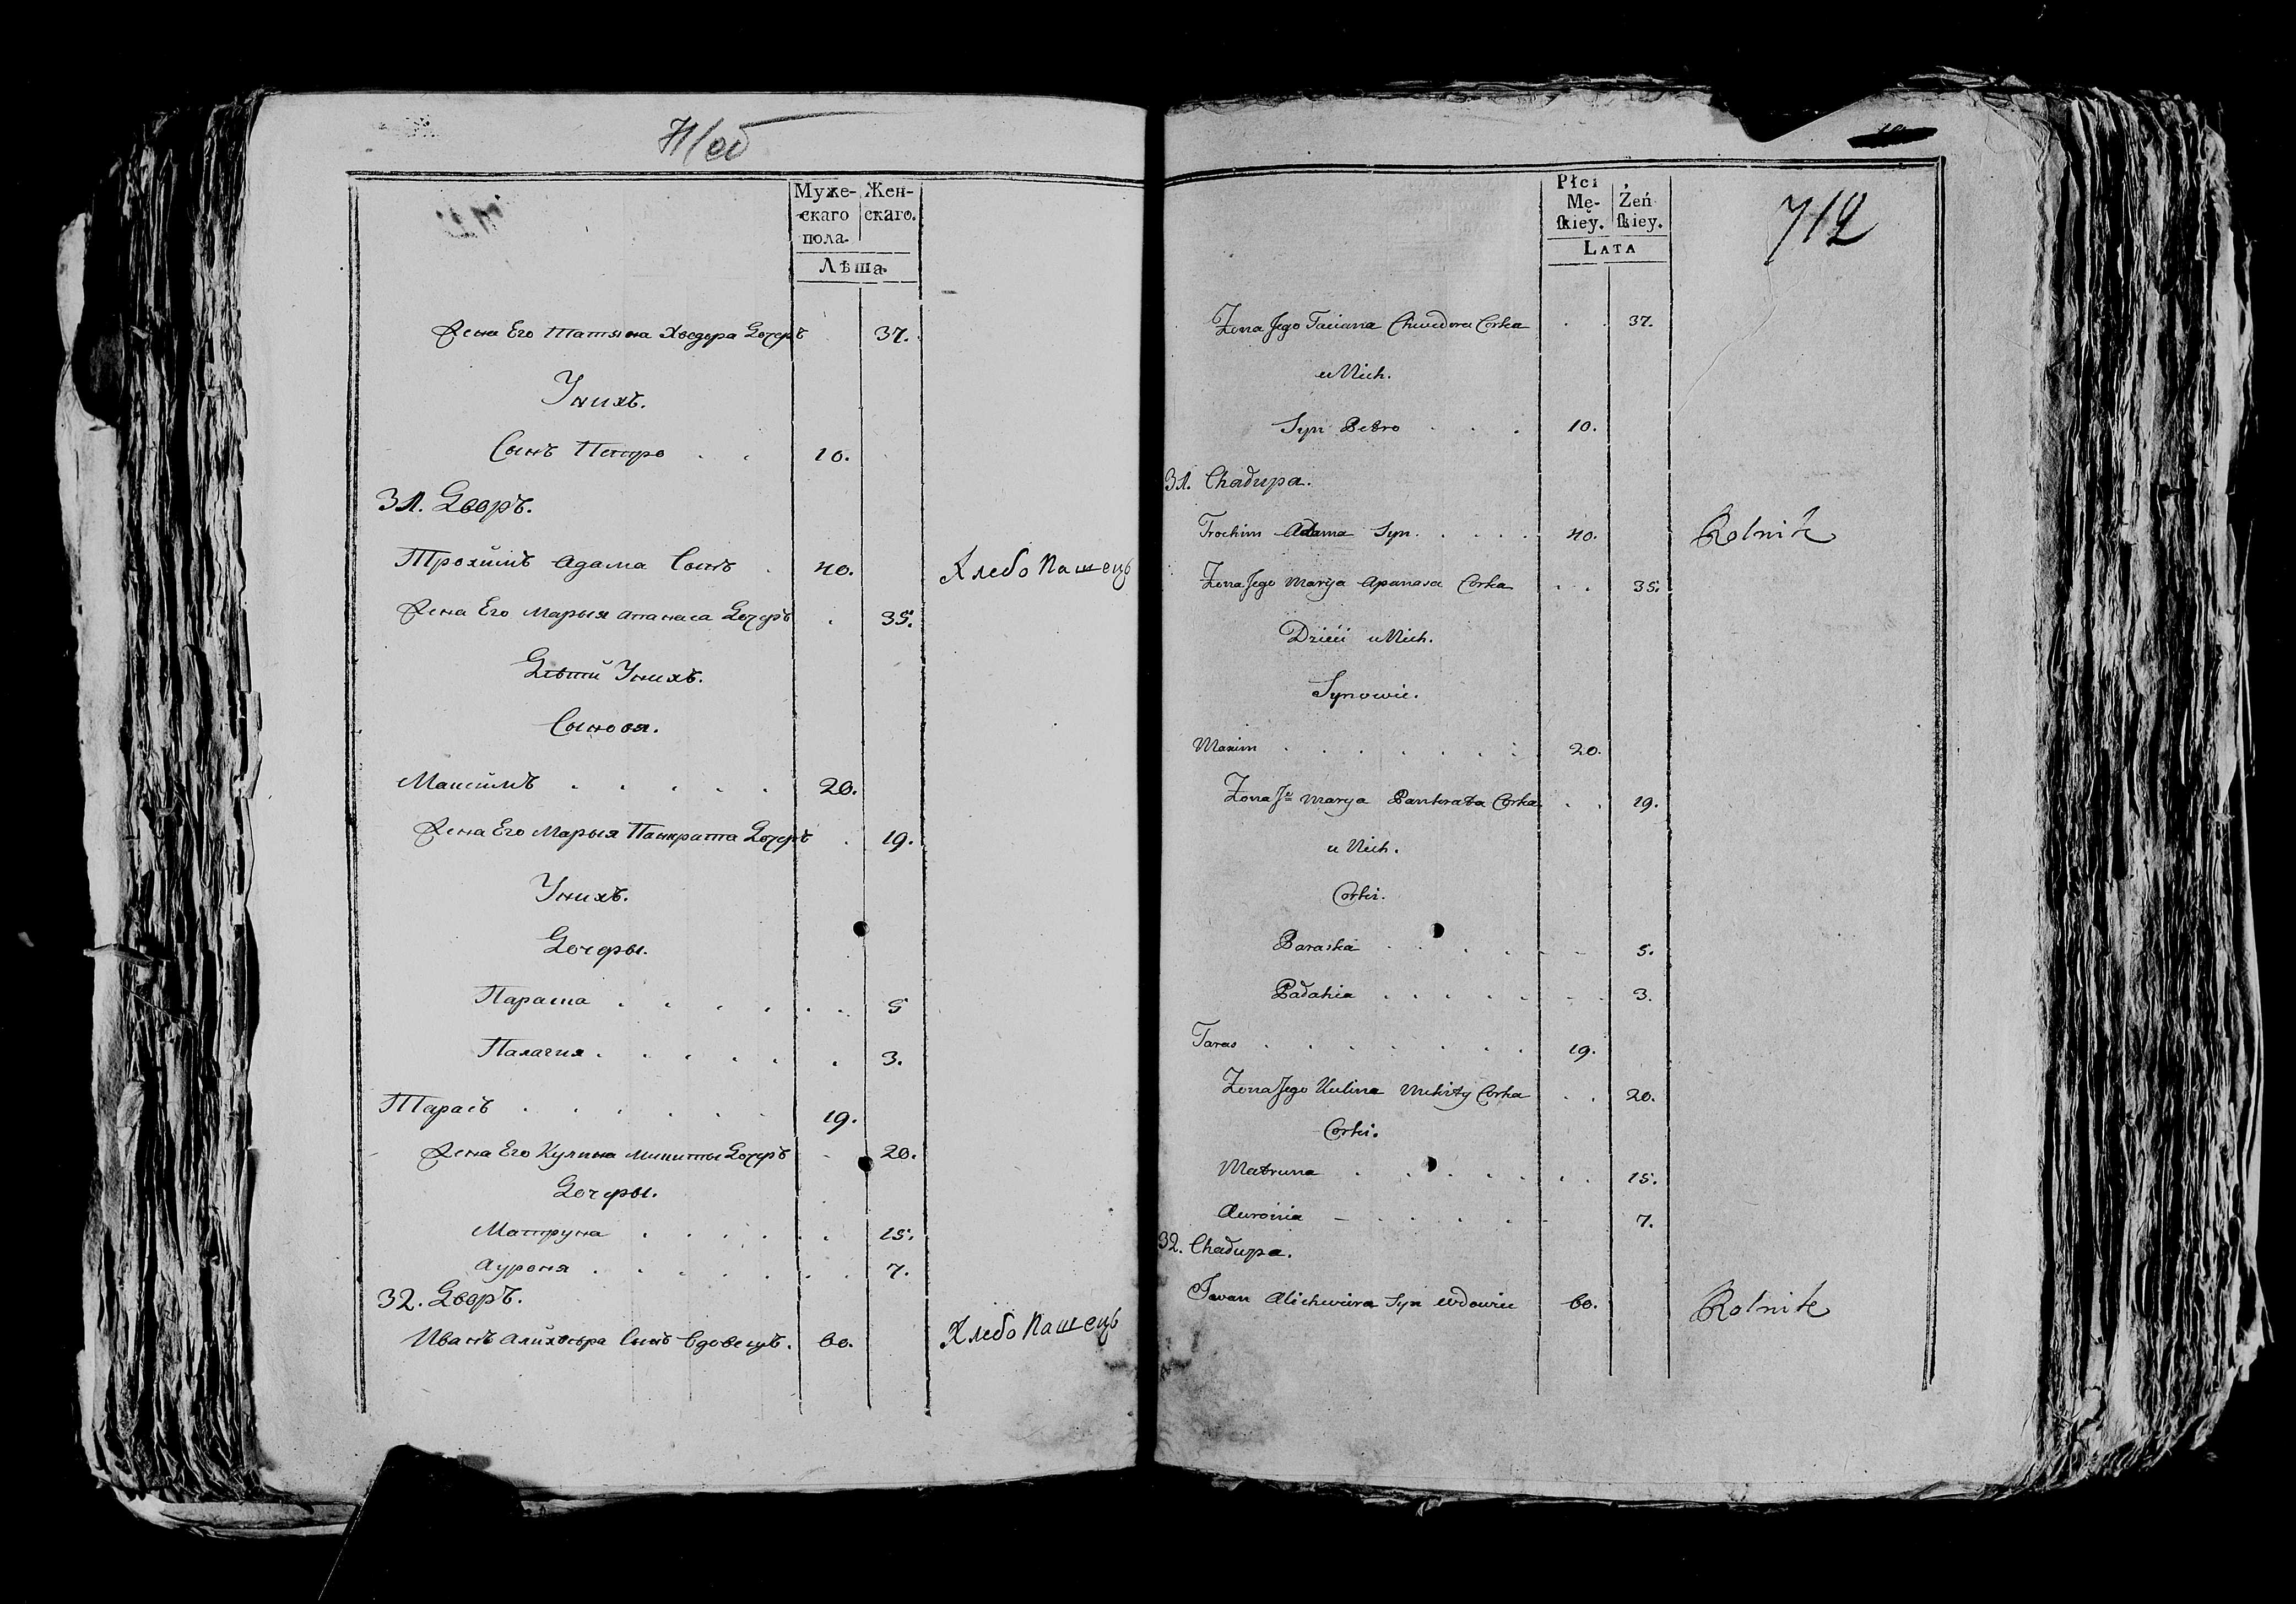 Муже-
скаго
пола.
Жен-
скаго.
Лѣта.
Жена Его Татяна Хведора Дочеръ 37.
Унихъ.
Сынъ Петро . . 10.
31. Дворъ.
Трохимъ Адама Сынъ . 40. Хлебопашецъ
Жена Его Марыя Апанаса Дочеръ . 35.
Дѣти Унихъ.
Сыновя.
Максимъ . . . . . 20.
Жена Его Марыя Панкрата Дочеръ . 19.
Унихъ.
Дочеры.
Параска . . . . . . 5
Палагия . . . . . . 3.
Тарасъ . . . . . . 19.
Жена Его Кулина Микиты Дочеръ . 20.
Дочеры.
Матруна . . . . . . 15.
Ауроня . . . . . . . 7.
32. Дворъ.
Иванъ Алихвѣра Сынъ Вдовецъ. 60. Хлебопашецъ
Płci
Mę-
ſkiey.
Żeń
ſkiey.
LATA
712
Zona Jego Taciana Chwedora Corka . . 37.
u Nich.
Syn Petro . . . 10.
31. Chałupa.
Trochim Adama Syn . . . . . 40. Rolnik
Zona Jego Marya Apanasa Corka . . 35.
Dzieci u Nich.
Synowie.
Maxim . . . . . . . 20.
Zona Jº Marya Pankrata Corka . . 19.
u Nich.
Corki.
Paraska . . . . . - - 5.
Pałahia . . . . . - - . 3.
Taras . . . . . . . . 19.
Zona Jego Kulina Mikity Corka . . 20.
Corki.
Matruna . . . . . . . 15.
Auronia - . . . . . - 7.
32. Chałupa.
Iwan Alichwiera Syn wdowiec 60. Rolnik